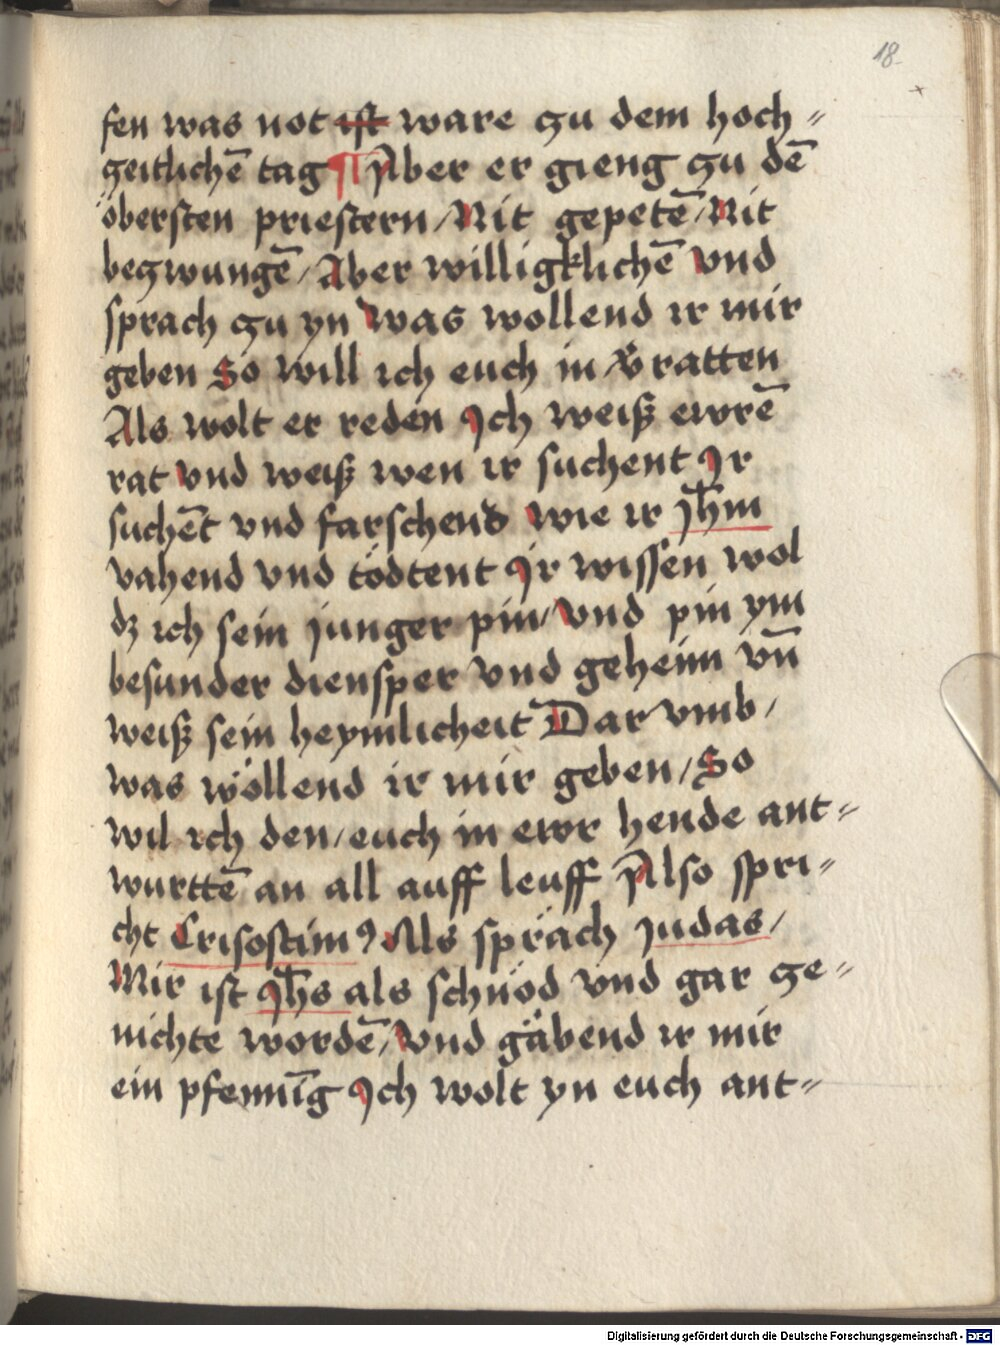 18
fen was not ist ware zu dem hoch⸗
zeitlichē tag ¶ Aber er gieng zu dē
öbersten priestern / Nit gepetē / Nit
bezwungē / Aber willigklichē vnd
sprach zu yn Was wollend ir mir
geben So will ich euch in v̄ratten
Als wolt er reden Ich weiß ewrē
rat vnd weiß wen ir suchent Ir
suchēt vnd farschend wie ir jh̄m
vahend vnd tödtent Ir wissen wol
dz ich sein junger pin / Vnd pin ym
besunder diensper vnd geheim vn̄
weiß sein heymlicheit Dar vmb /
was wöllend ir mir geben / So
wil ich den / euch in ewr hende ant⸗
wurttē an all auff leuff ¶ Also spri⸗
cht Crisostimꝰ Als spräch judas /
Mir ist jh̄s als schnöd vnd gar ze⸗
nichte wordē / Vnd gäbend ir mir
ein pfennīg Ich wolt yn euch ant⸗
Digitalisierung gefördert durch die Deutsche Forschungsgemeinschaft - DFG